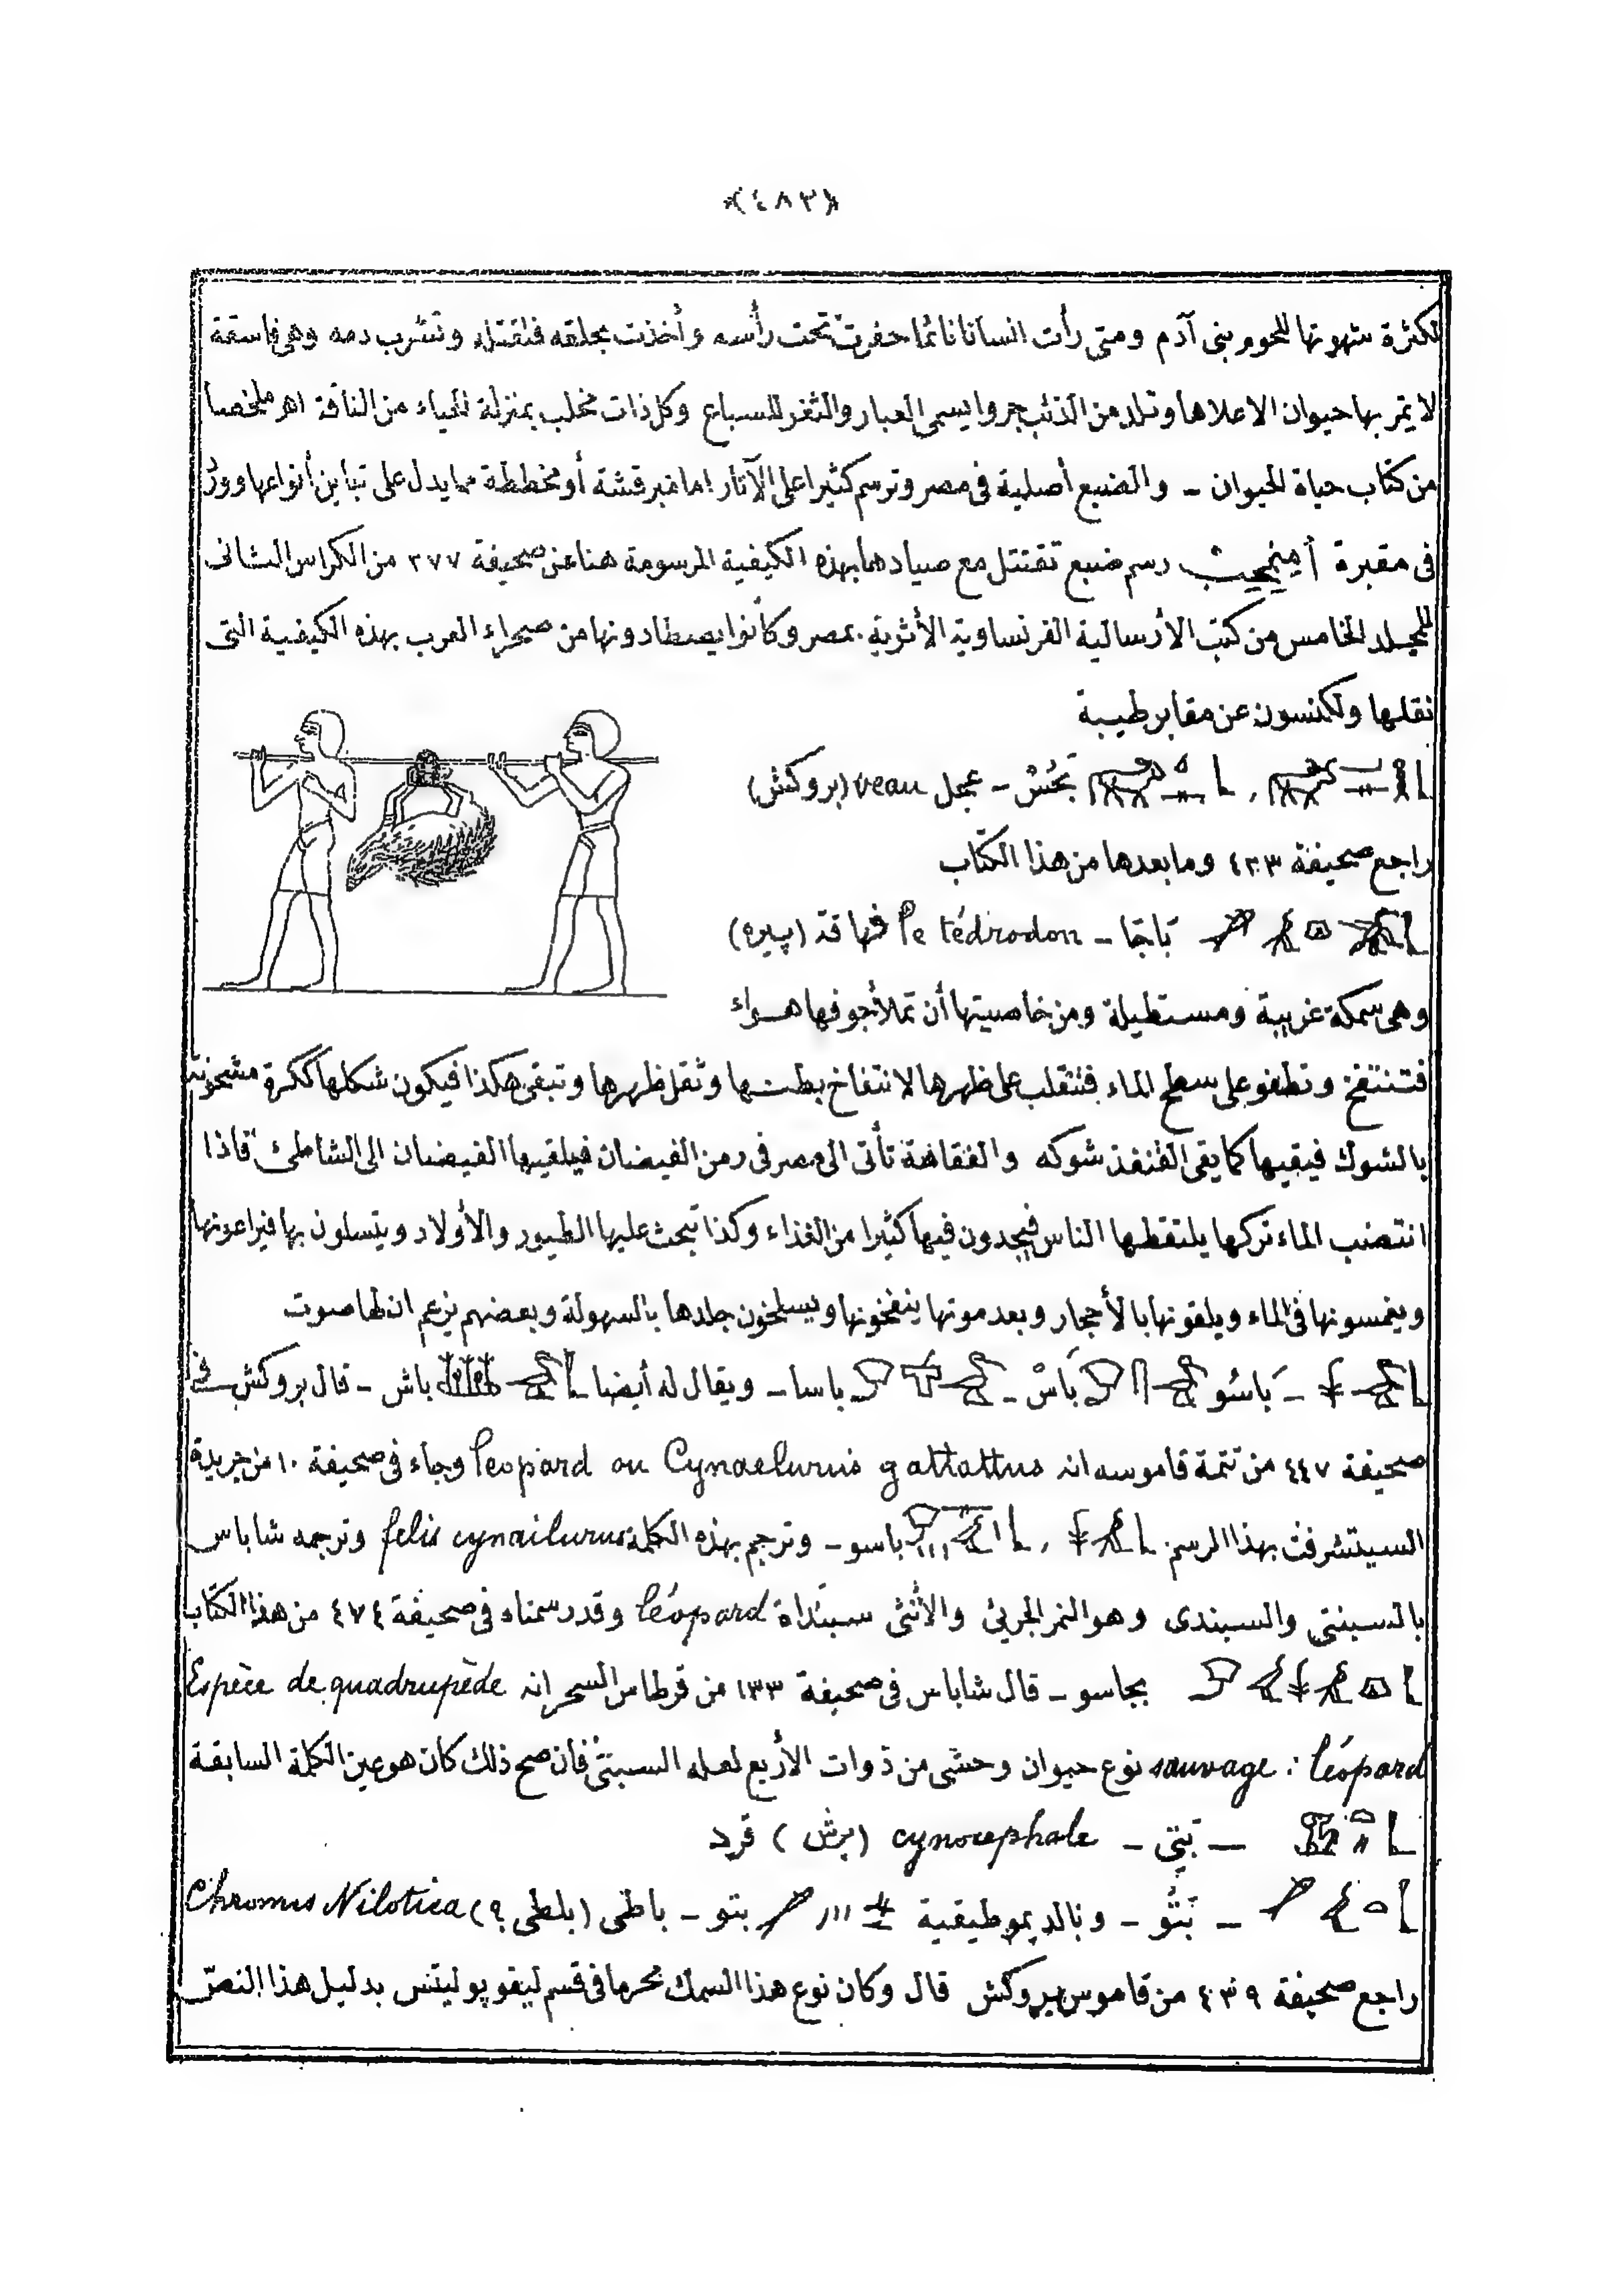 ﴿٤٨٣﴾
لكثرة شهوتها للحوم بنى آدم ومتى رأت انسانا نائما حفرت تحت رأسه وأخذت بحلقه فتقتله وتشرب دمه وهى فاسقة
لا يمر بها حيوان الا علاها وتلد من الذئب جروا يسمى العبار والثفر للسباع وكل ذات مخلب بمنزلة الحياء من الناقة اهر ملخصا
من كتاب حياة الحيوان - والضبع أصلية فى مصر وترسم كثيرا على الآثار اما مبرقشة أو مخططة مما يدل على تباين أنواعها وورد
فى مقبرة أمنمحب رسم ضبع تقتتل مع صيادها بهذه الكيفية المرسومة هنا عن صحيفة ٣٧٧ من الكراس الثانى
للمجلد الخامس من كتب الأرسالية الفرنساوية الأثرية بمصر وكانوا يصطادونها من صحراء العرب بهذه الكيفية التى
نقلها ولكنسون عن مقابر طيبة
بحُسْ - عجل veau (بروكش)
راجع صحيفة ٤٣٣ وما بعدها من هذا الكتاب
تاجا - Le tédrodon فهاقة (پيره)
وهى سمكة غريبة ومستطيلة ومن خاصيتها أن تملأ جوفها هواء
فتنتفخ وتطفو على سطح الماء فتنقلب على ظهرها لانتفاخ بطنها وثقل ظهرها وتبقى هكذا فيكون شكلها ككرة مشحونة
بالشوك فيقيها كما يقى القنفذ شوكه والفقاهة تأتى الى مصر فى زمن الفيضان فيلقيها الفيضان الى الشاطئ فاذا
انتضب الماء تركها يلتقطها الناس فيجدون فيها كثيرا من الغذاء وكذا تبحث عليها الطيور والأولاد ويتسلون بها فيراعونها
ويغمسونها فى الماء ويلقونها بالأحجار وبعد موتها ينفخونها ويسلخون جلدها بالسهولة وبعضهم يزعم ان لها صوت
- بَاسُو بَاسْ - باسا - ويقال له أيضا باش - قال بروكش فى
صحيفة ٤٤٧ من تتمة قاموسه انه leopard ou Cynaelurus gattattus وجاء فى صحيفة ١٠ من جريدة
السيتشرفت بهذا الرسم , باسو - وترجم بهذه الكلمة felis cynailurus وترجمه شاباس
بالسبنتى والسبندى وهو النمر الجريئ والأنثى سبنداة léopard وقد رسمناه فى صحيفة ٤٧٤ من هذا الكتاب
بجاسو - قال شاباس فى صحيفة ١٣٣ من قرطاس السحر انه Espèce de quadrupède
sauvage : léopard نوع حيوان وحشى من ذوات الأربع لعله السبنتى فان صح ذلك كان هو عين الكلمة السابقة
- بَنتِى - cynocephale (برش) قرد
- بَنتُو - وبالديموطيقية بتو - باطى (بلطى ؟) Chromis Nilotica
راجع صحيفة ٤٣٩ من قاموس بروكش قال وكان نوع هذا السمك محرما فى قسم ليقوپوليتس بدليل هذا النص